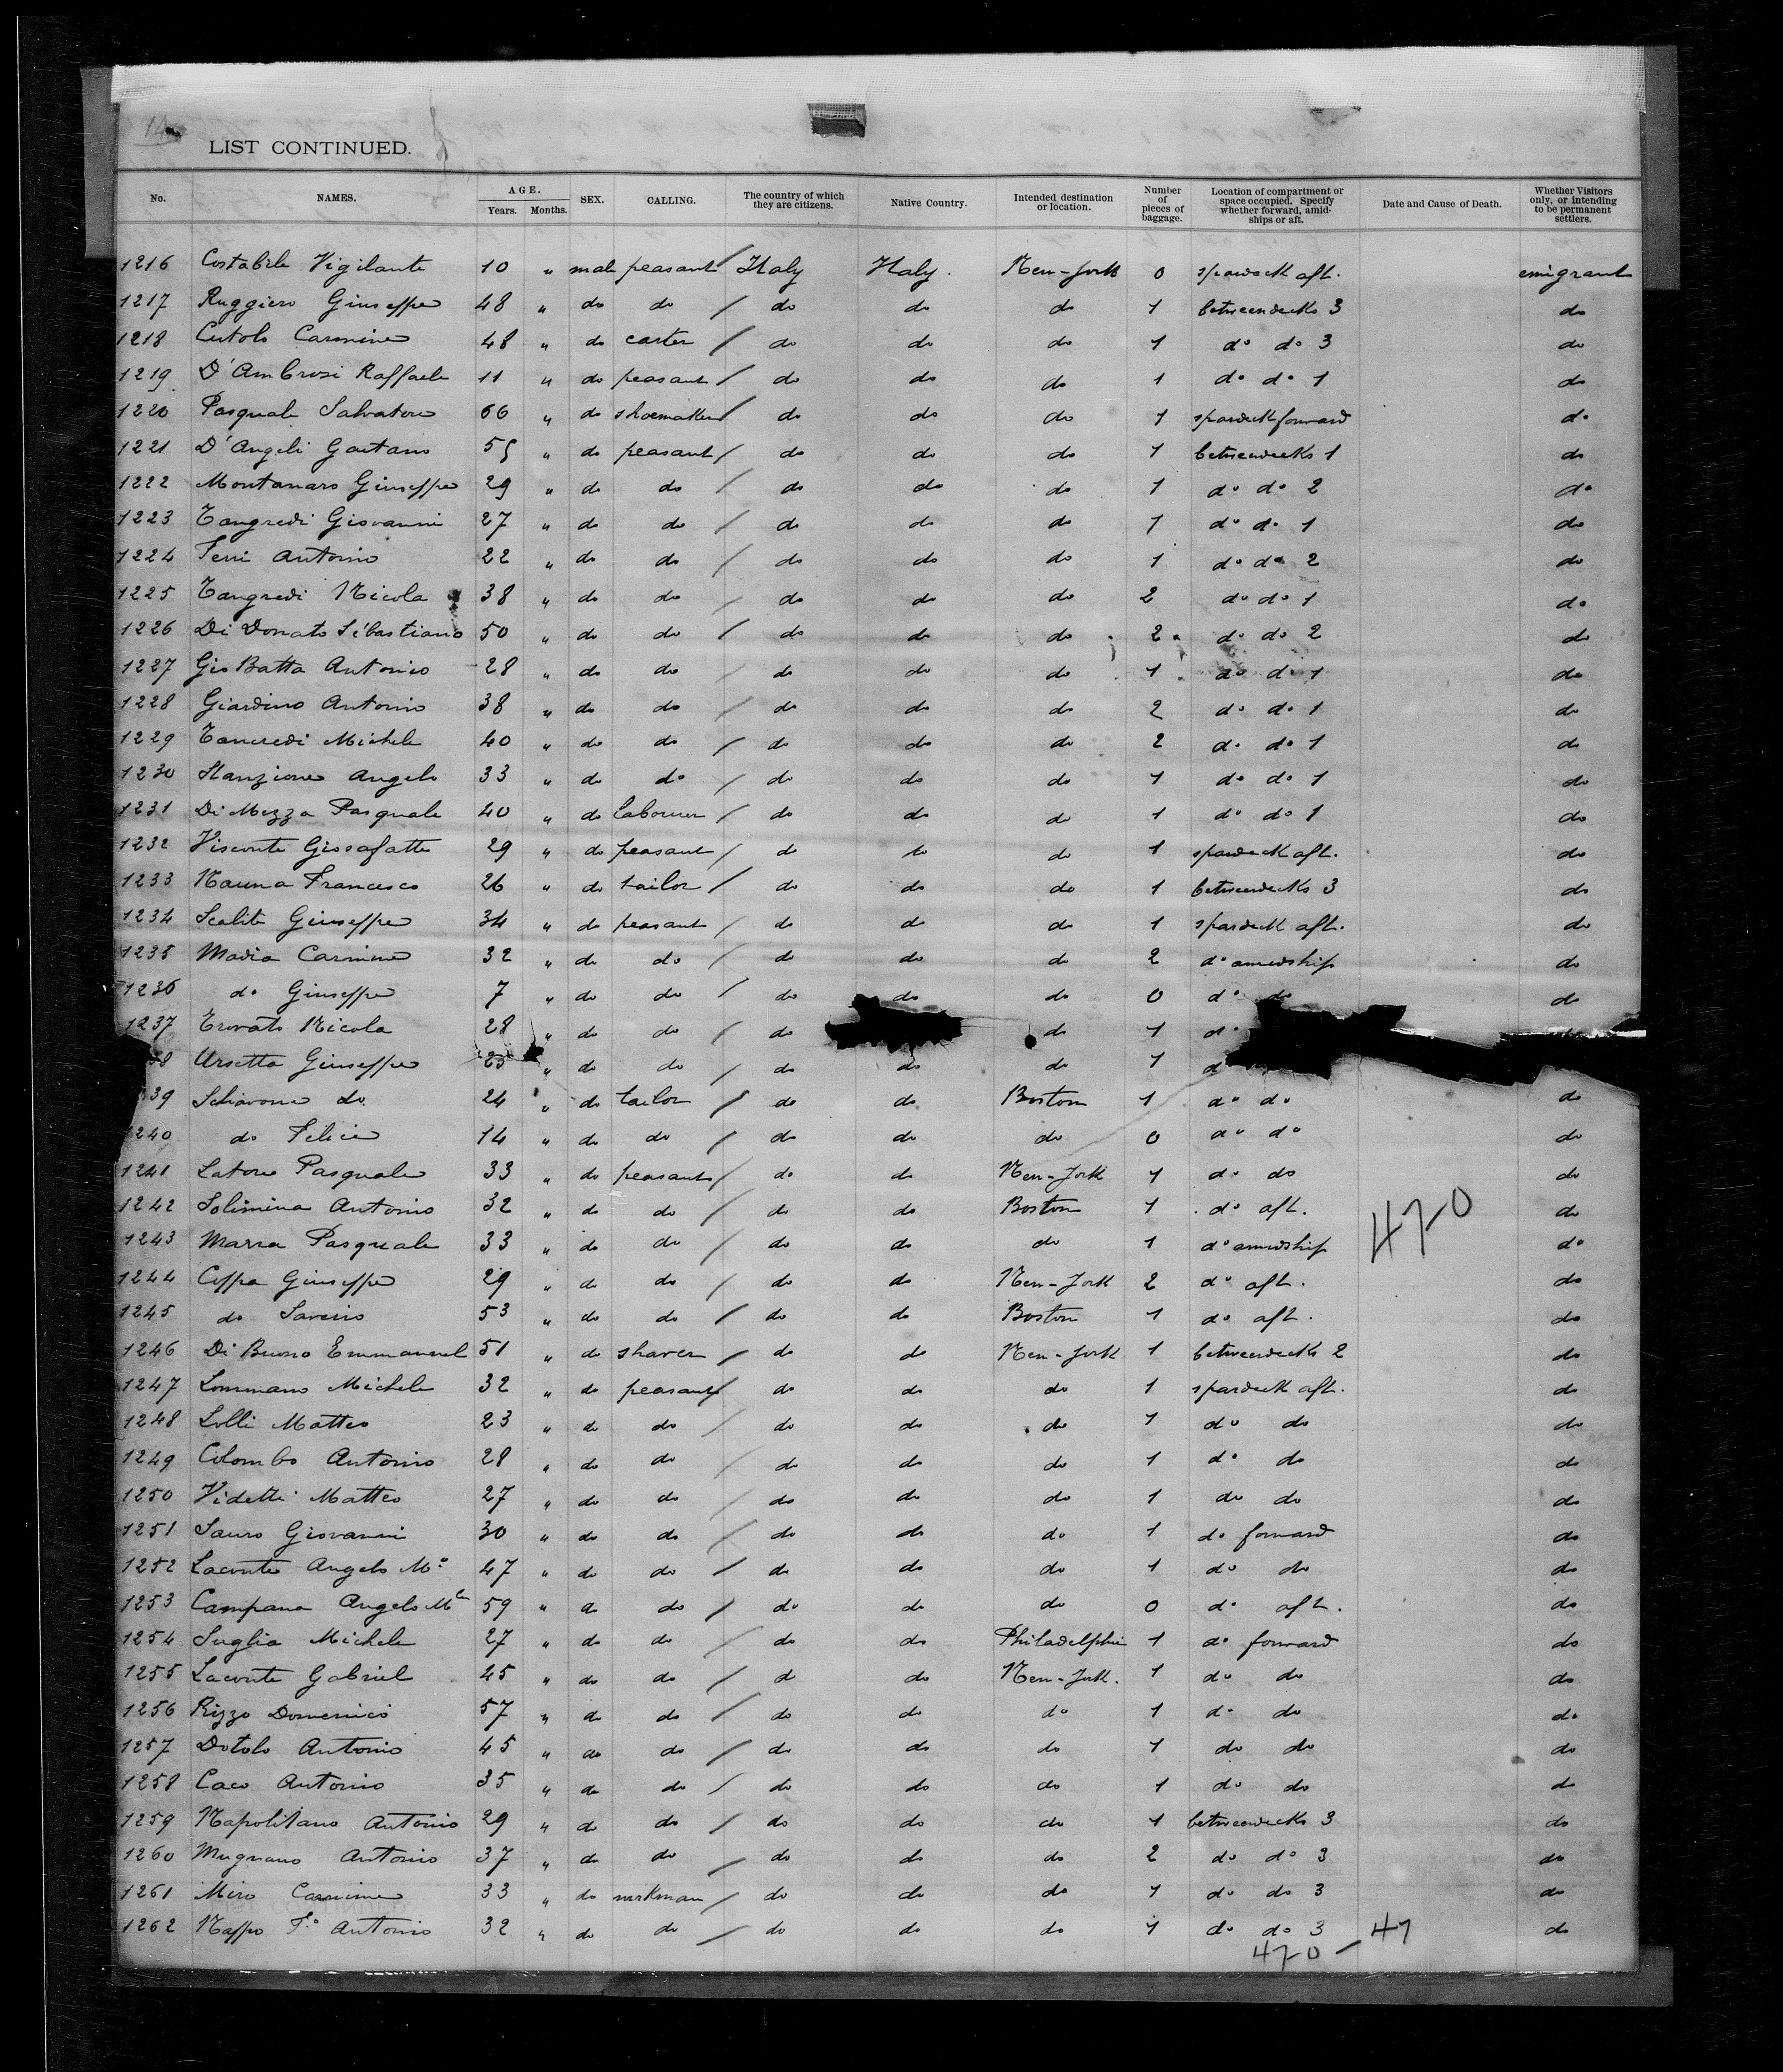 LIST CONTINUED.
No. NAMES. AGE. Years. Months. SEX. CALLING. The country of which they are citizens. Native Country. Intended destination or location. Number of pieces of baggage. Location of compartment or space occupied. Specify whether forward, amidships or aft. Date and Cause of Death. Whether Visitors only, or intending to be permanent settlers.
1216 Costabile Vigilante 10 " male peasant / Italy Italy. New-York 0 spardeck aft. emigrant
1217 Ruggiero Giuseppe 48 " do do / do do do 1 betweendecks 3 do
1218 Cutolo Carmine 48 " do carter / do do do 1 do do 3 do
1219 D'Ambrosi Raffaele 11 " do peasant / do do do 1 do do 1 do
1220 Pasquale Salvatore 66 " do shoemaker / do do do 1 spardeck forward do
1221 D'Angeli Gaetano 55 " do peasant / do do do 1 betweendecks 1 do
1222 Montanaro Giuseppe 29 " do do / do do do 1 do do 2 do
1223 Tangredi Giovanni 27 " do do / do do do 1 do do 1 do
1224 Ferri Antonio 22 " do do / do do do 1 do do 2 do
1225 Tangredi Nicola 38 " do do / do do do 2 do do 1 do
1226 Di Donato Sebastiano 50 " do do / do do do 2 do do 2 do
1227 Gio Batta Antonio 28 " do do / do do do 1 do do 1 do
1228 Giardino Antonio 38 " do do / do do do 2 do do 1 do
1229 Tancredi Michele 40 " do do / do do do 2 do do 1 do
1230 Stanzione Angelo 33 " do do / do do do 1 do do 1 do
1231 Di Mezza Pasquale 40 " do labourer / do do do 1 do do 1 do
1232 Visconte Giosafatte 29 " do peasant / do do do 1 spardeck aft. do
1233 Nauna Francesco 26 " do tailor / do do do 1 betweendecks 3 do
1234 Scalite Giuseppe 34 " do peasant / do do do 1 spardeck aft. do
1235 Madia Carmine 32 " do do / do do do 2 do amidship do
1236 do Giuseppe 7 " do do / do do do 0 do do do
1237 Trovato Nicola 28 " do do / do do 1 do
38 Ursetta Giuseppe 25 " do do / do do do 1 d
39 Schiavone do 24 " do tailor / do do Boston 1 do do do
1240 do Felice 14 " do do / do do do 0 do do do
1241 Latore Pasquale 33 " do peasant / do do New-York 1 do do do
1242 Solimina Antonio 32 " do do / do do Boston 1 do aft. do
470
1243 Marra Pasquale 33 " do do / do do do 1 do amidship do
1244 Coppa Giuseppe 29 " do do / do do New-York 2 do aft. do
1245 do Saverio 53 " do do / do do Boston 1 do aft. do
1246 Di Buono Emmanuel 51 " do shaver / do do New-York 1 betweendecks 2 do
1247 Lommano Michele 32 " do peasant / do do do 1 spardeck aft. do
1248 Lolli Matteo 23 " do do / do do do 1 do do do
1249 Colombo Antonio 28 " do do / do do do 1 do do do
1250 Videtti Matteo 27 " do do / do do do 1 do do do
1251 Sauro Giovanni 30 " do do / do do do 1 do forward do
1252 Laconte Angelo Mº 47 " do do / do do do 1 do do do
1253 Campana Angelo Mº 59 " do do / do do do 0 do aft. do
1254 Suglia Michele 27 " do do / do do Philadelphia 1 do forward do
1255 Laconte Gabriel 45 " do do / d do New-York. 1 do do do
1256 Rizzo Domenico 57 " do do / do do do 1 do do do
1257 Dotolo Antonio 45 " do do / do do do 1 do do do
1258 Caco Antonio 35 " do do / do do do 1 do do do
1259 Napolitano Antonio 29 " do do / do do do 1 betweendecks 3 do
1260 Mugnano Antonio 37 " do do / do do do 2 do do 3 do
1261 Miro Carmine 33 " do workman / do do do 1 do do 3 do
1262 Nappo Fº Antonio 32 " do do / do do do 1 do do 3 47 do
470 -